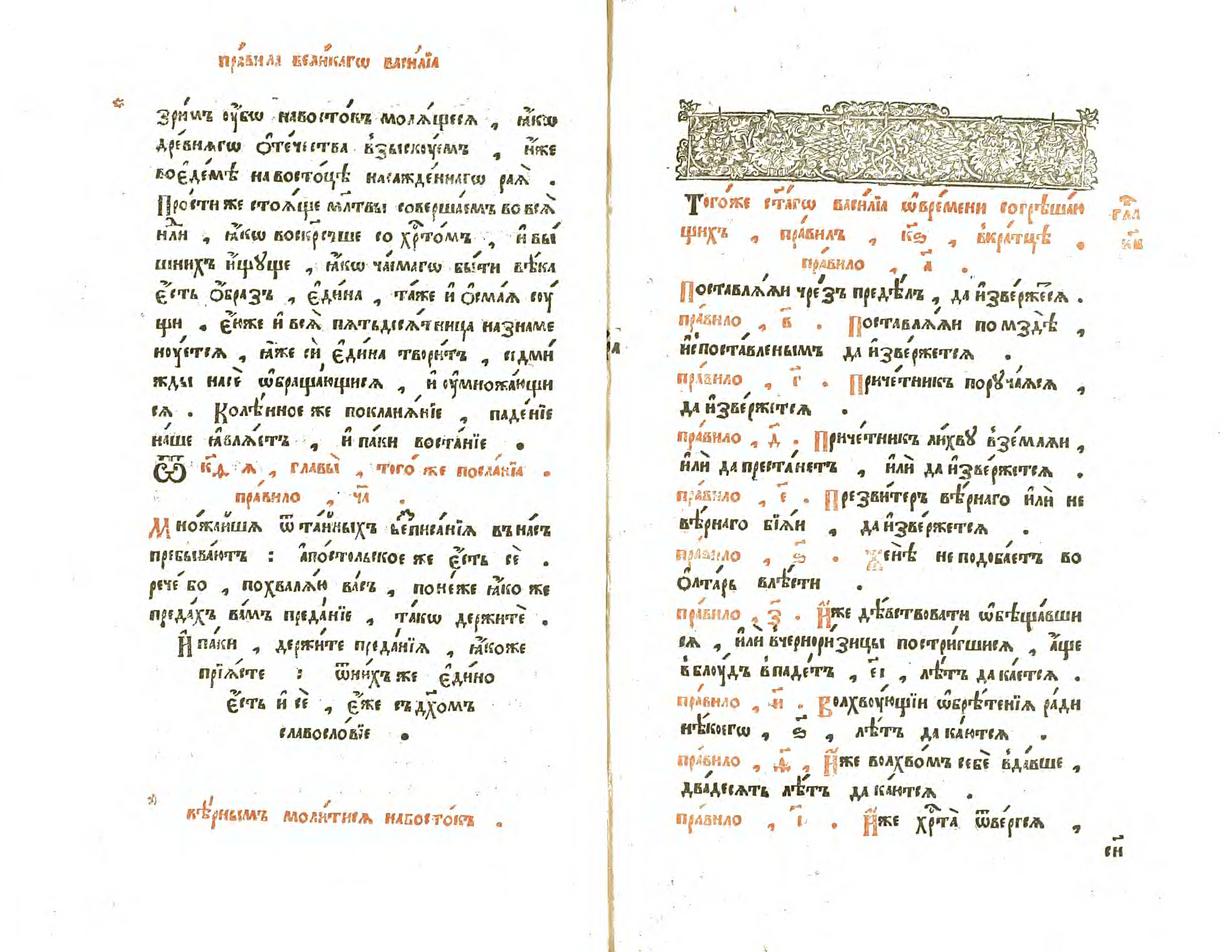 пра́вила вели́кагѡ васи́лїа
зри́мъ ᲂу҆́бѡ навосто́къ молѧ́щесѧ , ꙗ҆́кѡ
дре́внѧгѡ ѻ҆те́чества взы́скꙋемъ , и҆́же
воє҆де́мѣ навосто́цѣ насажде́ннагѡ раѧ̀ .
Про́сти же стоѧ́ще мл҃твы соверша́емъ во всѧ̀
и҆лѝ , ꙗ҆́кѡ воскре́сше со хрⷭ҇то́мъ , и҆ вы́
шнихъ и҆́щꙋще , ꙗ҆́кѡ ча́емагѡ бы́ти вѣ́ка
є҆́сть ѻ҆́бразъ , є҆ди́на , та́же и҆ ѻ҆сма́ѧ сꙋ́
щи . є҆ѧ́же и҆ всѧ̀ пѧтьдесѧ́тница назнаме
нꙋ́етсѧ , ꙗ҆́же сѝ є҆ди́на твори́тъ , седми́
жды насѐ ѡ҆браща́ющисѧ , и҆ ᲂу҆множа́ющи
сѧ . Колѣ́нное же поклонѧ́нїе , паде́нїе
на́ше ꙗ҆влѧ́етъ , и҆ па́ки воста́нїе .
Ѿ к҃д ѧ , главы̀ , того́ же посла́нїа .
пра́вило , ч҃а .
Мно́жайшаѧ ѿ та́йныхъ беспи́санїѧ въ на́съ
пребыва́ютъ : а҆по́стольское же є҆́сть сѐ .
рече́ бо , похвалѧ́ю ва́съ , поне́же ꙗ҆́ко же
преда́хъ ва́мъ преда́нїе , та́кѡ держи́те .
И҆ па́ки , держи́те преда́нїѧ , ꙗ҆́коже
прїѧ́сте : ѿ ни́хъ же є҆ди́но
є҆́сть и҆ сѐ , є҆́же съ дх҃омъ
славосло́вїе .
вѣ́рнымъ моли́тисѧ навосто́къ .
Того́же ст҃а́гѡ васи́лїа ѡ҆ вре́мени согрѣша́ю
щихъ , пра́вилъ , к҃ѕ , вкра́тцѣ .
гла
к҃в
пра́вило , а҃ .
Поставлѧ́ѧи чре́зъ предѣ́лъ , да и҆зве́ржесѧ .
пра́вило , в҃ . Поставлѧ́ѧи по мздѣ̀ ,
и҆споста́вленымъ да и҆зве́ржетсѧ .
пра́вило , г҃ . Приче́тникъ порꙋча́ѧсѧ ,
да и҆зве́ржетсѧ .
пра́вило , д҃ . Приче́тникъ ли́хвꙋ взе́млѧи ,
и҆лѝ да преста́нетъ , и҆лѝ да и҆зве́ржетсѧ .
пра́вило , е҃ . Презви́теръ вѣ́рнаго и҆лѝ не
вѣ́рнаго бїѧ́и , да и҆зве́ржетсѧ .
пра́вило , ѕ҃ . Женѣ̀ не подоба́етъ во
ѻ҆лта́рь влѣ́сти .
пра́вило , з҃ . И҆́же дѣ́вствовати ѡ҆бѣща́вши
сѧ , и҆лѝ вчернори́зицы постри́гшисѧ , а҆́ще
вблꙋ́дъ впаде́тъ , є҃і , лѣ́тъ да ка́етсѧ .
пра́вило , и҃ . Волхвꙋ́ющїи ѡ҆брѣ́тенїѧ ра́ди
нѣ́коегѡ , ѕ҃ , лѣ́тъ да ка́ютсѧ .
пра́вило , ѳ҃ , И҆́же волхво́мъ себѐ вда́вше ,
два́десѧть лѣ́тъ да ка́ютсѧ .
пра́вило , і҃ . И҆́же хрⷭ҇та̀ ѿве́ргсѧ ,
с҃и